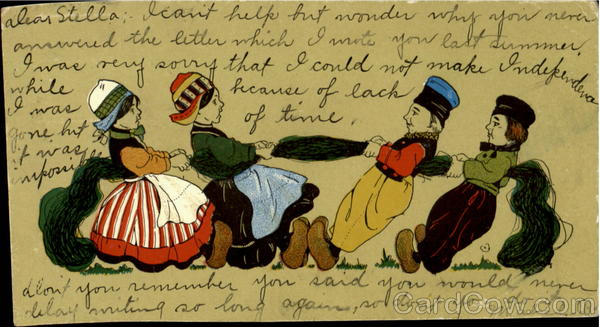 Dear Stella; I can't help but wonder why you never
answered the letter which I wrote you last summer.
I was very sorry that I could not make Independence
while because of lack
I was of time.
gone but
it was
impossible
don't you remember you said you would never
delay writing so long again, so
CardCow.com